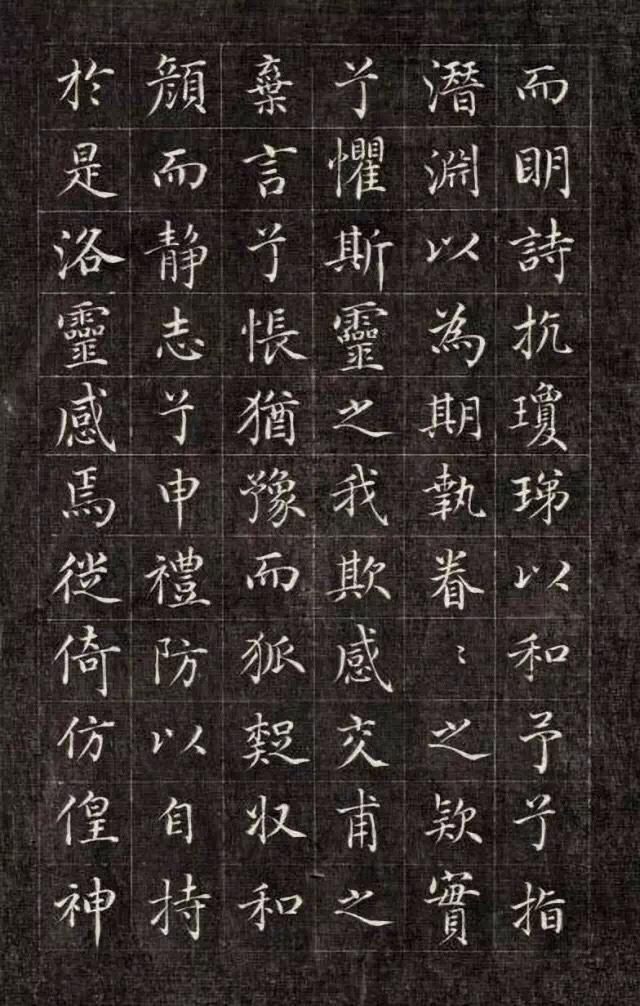 而眀詩抗瓊珶以和予兮指
潛淵以為期執眷〻之欵實
兮懼斯靈之我欺感交甫之
棄言兮悵猶豫而狐疑収和
顏而静志兮申禮防以自持
於是洛靈感焉徙倚仿偟神